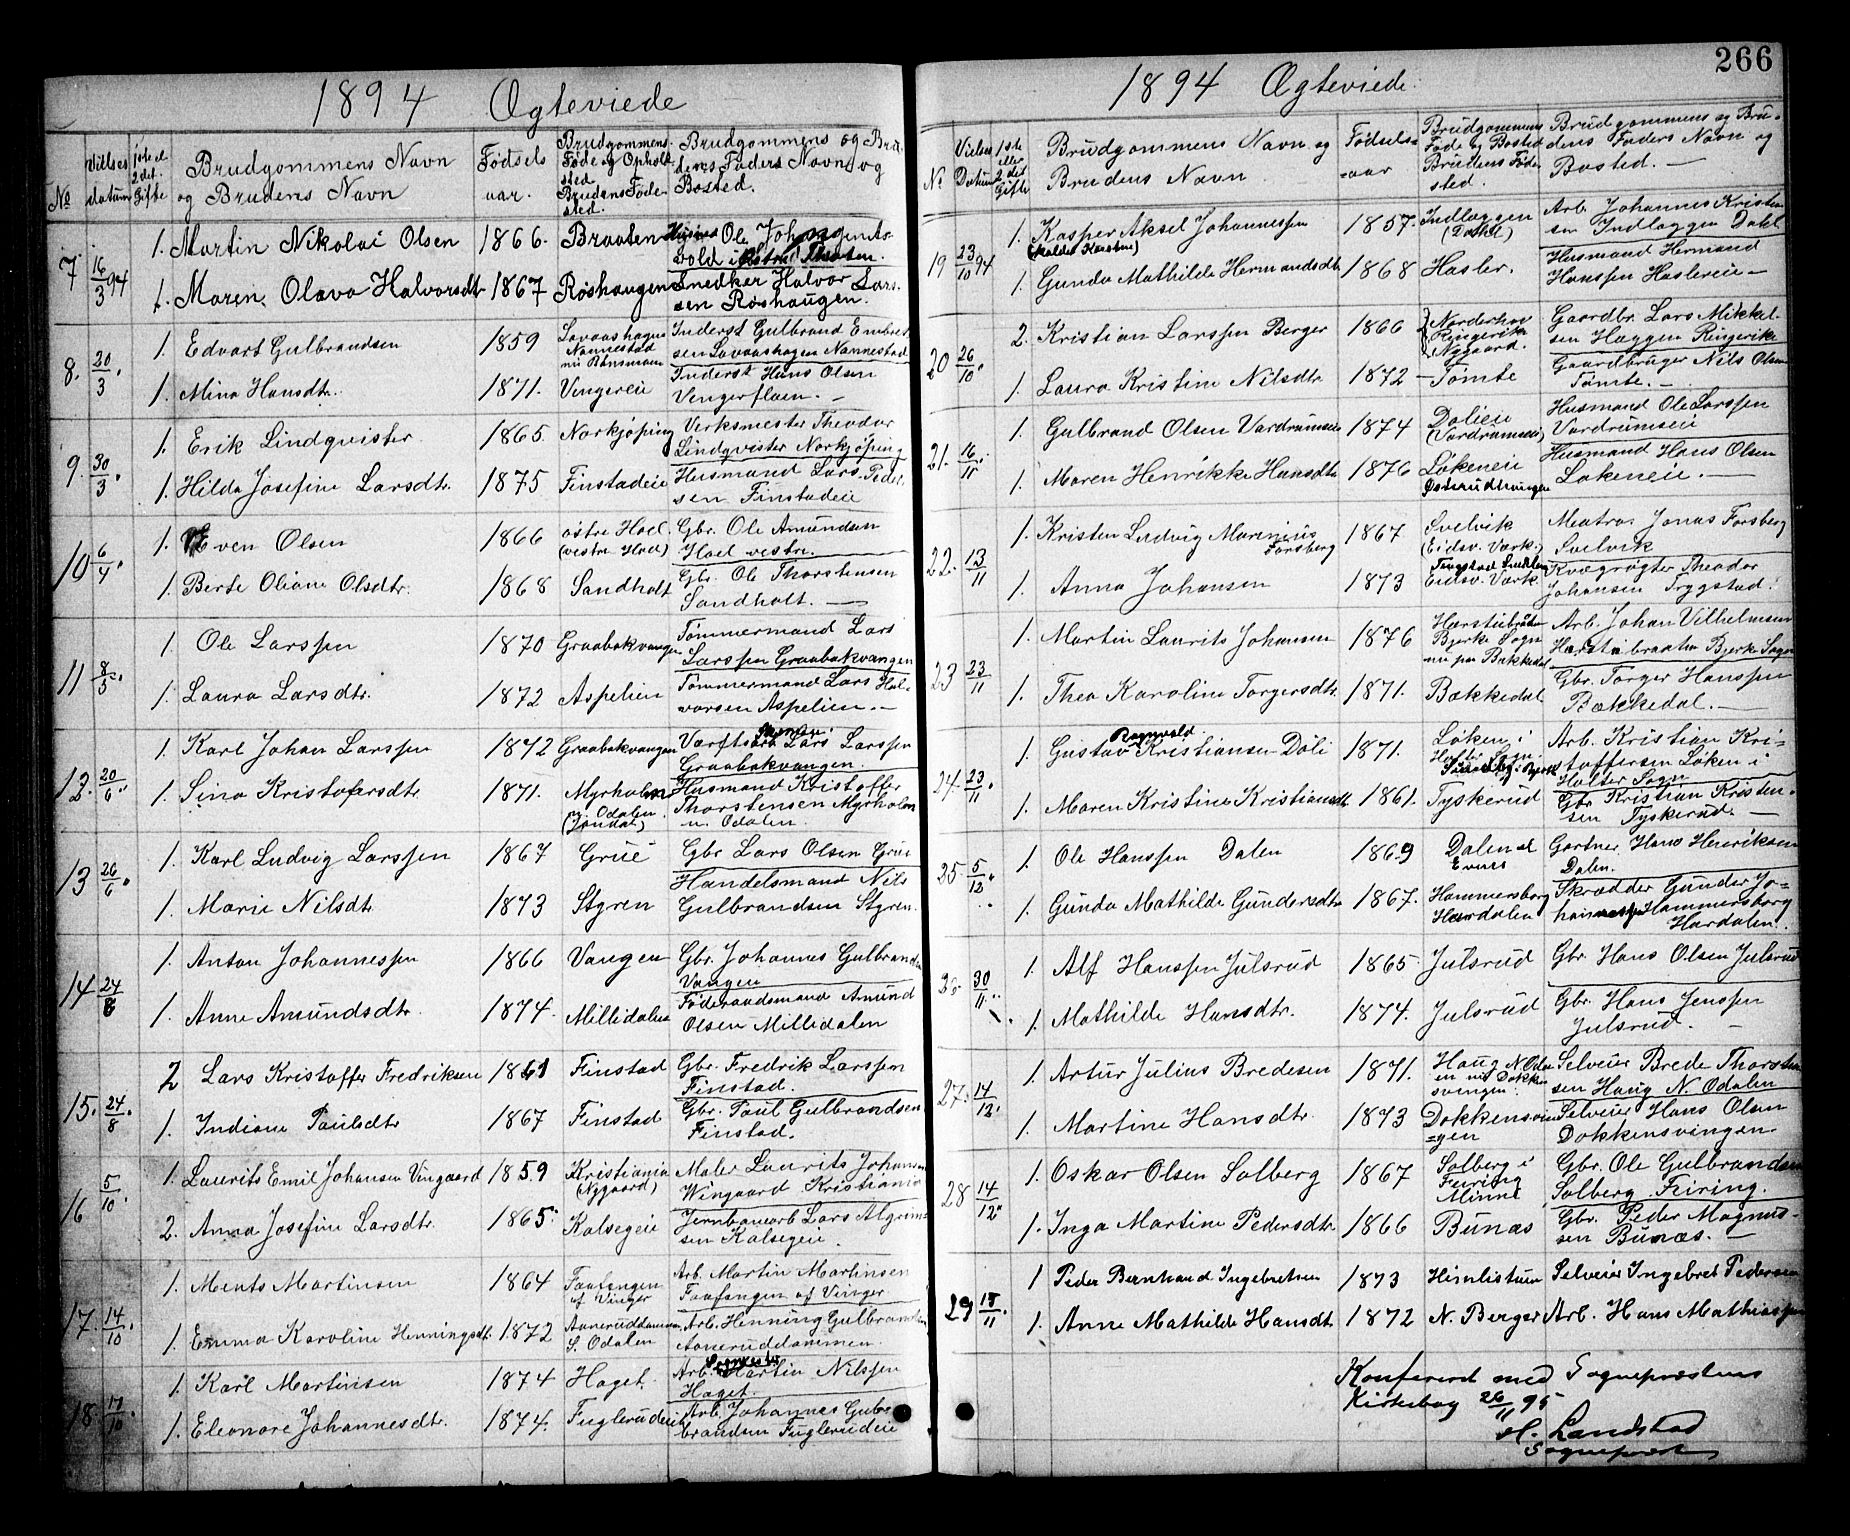 1894 Ægteviede
No
Vielses datum
1ste el. 2det. Gifte
Brudgommens Navn og Brudens Navn
Fødsels aar.
Brudgommens Føde og Opholdsted Brudens Fødested.
Brudgommens og Brudens Faders Navn og Bosted.
7 16/3 94
1. Martin Nikolai Olsen 1866. Braaten
1. Maren Olava Halvorsdtr 1867 Røshaugen Snedker Halvor Larssen Røshaugen.
8. 20/3.
1. Edvart Gulbrandsen 1859 Nannestad Inderst Gulbrand Embretsen Lovaashagen Nannestad
1. Mina Hansdtr. 1871. Vengereie Inderst Hans Olsen Vengerflaen. —
9. 30/3
1. Erik Lindqvister 1865. Norkjøping Verksmester Theodor Lindqvister Norkjøping
1. Hilda Josefine Larsdtr. 1875 Finstadeie Husmand Lars Pedersen Finstadeie
10 6/4.
1. Even Olsen 1866 østre Hoel (vestre Hoel) Gbr. Ole Amundsen Hoel vestre.
1. Berte Oliane Olsdtr. 1868 Sandholt Gbr. Ole Thorstensen Sandholt. —
11 8/5.
1. Ole Larssen 1870 Graabakvangen Tømmermand Lars Larssen Graabakvangen
1. Laura Larsdtr. 1872 Aspelien Tømmermand Lars Halvorsen Aspelien. —
12. 20/6.
1. Karl Johan Larssen 1872 Graabakvangen Værftsarb. Lars Larssen Graabakvangen.
1. Sina Kristofersdtr 1871. Myrholm n. Odalen. Husmand Kristoffer Thorstensen Myrholm n. Odalen.
13 26/6.
1. Karl Ludvig Larssen 1867 Grue Gbr. Lars Olsen Grue
1. Marie Nilsdtr 1873 Styren Handelsmand Nils Gulbrandsen Styren.
14 24/8
1. Anton Johannessen 1866 Vangen Gbr. Johannes Gulbrandsen Vangen
1. Anne Amundsdtr. 1874. Millidalen Føderaadsmand Amund Olsen Millidalen
15. 24/8.
2 Lars Kristoffer Fredriksen 1861 Finstad Gbr. Fredrik Larssen Finstad.
1. Indiane Paulsdtr 1867 Finstad Gbr. Paul Gulbrandsen Finstad.
16 5/10.
1. Laurits Emil Johansen Vingaard 1859 Kristiania (Nygaard) Maler Laurits Johansen Wingaard Kristiania
2. Anna Josefine Larsdtr. 1865. Kalsegeie Jernbanearb. Lars Algrimsen Kalsegeie.
17. 14/10.
1. Ments Martinsen 1864 Faafengen af Vinger Arb. Martin Martinsen Faafengen af Vinger
1. Emma Karoline Henningsdtr. 1872 S. Odalen Arb. Henning Gulbrandsen Aaneruddammen.
18. 17/10.
1. Karl Martinsen 1874 Haget. Arb. Martin Nilssen Haget.
1. Eleonore Johannesdtr. 1874. Fuglerudeie Arb. Johannes Gulbrandsen Fuglerudeie
266
1894 Ægteviede.
No
Vielses Datum
1ste eller 2det Gifte
Brudgommens Navn og Brudens Navn
Fødsels=aar
Brudgommens Føde og Bosted Brudens Fødested.
Brudgommens og Brudens Faders Navn og Bosted. —
19 23/10 94
1. Kasper Aksel Johannessen 1857. Indlæggen (Dahl) Arb. Johannes Kristensen Indlæggen Dahl
1. Gunda Mathilde Hermandsdtr 1868 Hasler. Husmand Hermand Hanssen Haslereie —
20 26/10.
2. Kristian Larssen Berger 1866 Norderhov Ringerike Nygaard. Gaardbr. Lars Mikkelsen Haggen Ringerike
1. Laura Kristine Nilsdtr 1872 — Tømte Gaardbruger Nils Olsen Tømte. —
21. 16/11.
1. Gulbrand Olsen Vardrumseie 1874 Dalieie (Vardrumseie) Husmand Ole Larssen Vardrumseie
1. Maren Henrikke Hansdtr 1876 Løkeneie Husmand Hans Olsen Løkeneie. —
22. 13/11
1. Kristen Ludvig Marinius Forsberg 1867 Svelvik (Eidsv. Værk.) Matros Jonas Forsberg Svelvik
1. Anna Johansen 1873 Eidsv. Værk. Kvægrøgter Theodor Johansen Trygstad.
23 23/11
1. Martin Laurits Johansen 1876 Bjerke Sogn nu paa Bækkedal Arb. Johan Vilhelmsen Harstibraaten Bjerke Sogn
1. Thea Karoline Torgersdtr. 1871. Bækkedal. Gbr. Torger Hanssen Bækkedal. —
24. 23/11.
1. Gustav Ragnvald Kristiansen Døli 1871. Løken i Holter Sogn Arb. Kristian Kristoffersen Løken i Holter Sogn
1. Maren Kristine Kristiansdtr 1861. Tyskerud Gbr. Kristian Kristensen Tyskerud. —
25 5/12.
1. Ole Hanssen Dalen 1869 Dalen Gartner Hans Henriksen Dalen.
1. Gunda Mathilde Gundersdtr 1867. Hammersborg Hurdalen Skrædder Gunder Johannessen Hammersborg Hurdalen.
30/11.
1. Alf Hanssen Julsrud 1865 Julsrud Gbr. Hans Olsen Julsrud
1. Mathilde Hansdtr. 1874. Julsrud Gbr. Hans Jenssen Julsrud. —
27. 14/12.
1. Artur Julius Bredesen 1871. Haug N. Odalen nu Dokkensvingen. Selveier Brede Thorstensen Haug N. Odalen
1. Martine Hansdtr. 1873 Dokkensvin=gen Selveier Hans Olsen Dokkensvingen.
28 14/12.
1. Oskar Olsen Solberg 1867 Solberg i Feiring Minne Gbr. Ole Gulbrandsen Solberg Feiring.
1. Inga Martine Pedersdtr. 1866 Bunæs Gbr. Peder Magnussen Bunæs. —
29 15/11.
1 Peder Bernhard Ingebretsen 1873 Himlistuen Selveier Ingebret Pedersen
1. Anne Mathilde Hansdtr 1872 N. Berger Arb. Hans Mathiassen
Konfereret med Sogneprestens
Kirkebog 26/11 95
H. Landstad
Sogneprest